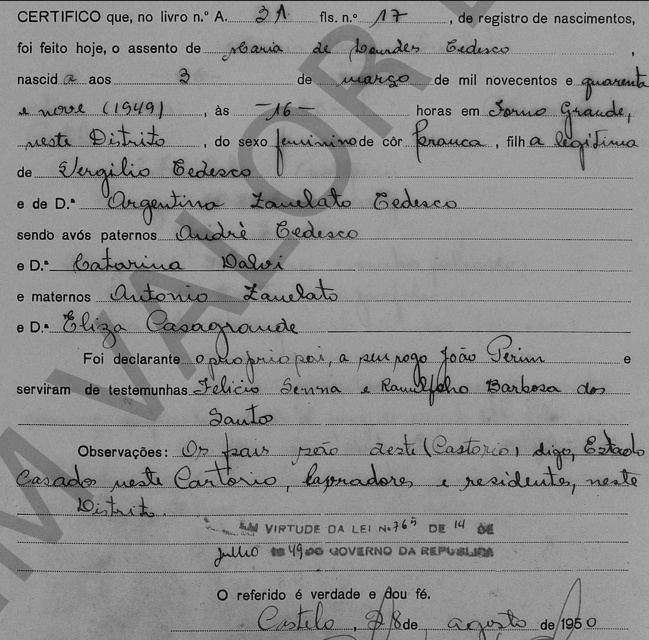 CERTIFICO que, no livro n.º A. 31 fls. n.º 17, de registro de nascimentos,
foi feito hoje, o assento de Maria de Lourdes Tedesco,
nascida aos 3 de março de mil novecentos e quarenta
e nove (1949), às -16- horas em Forno Grande,
neste Distrito, do sexo feminino de côr branca, filha legítima
de Vergilio Tedesco
e de D.ª Argentina Zanelato Tedesco
sendo avós paternos André Tedesco
e D.ª Catarina Dalvi
e maternos Antonio Zanelato
e D.ª Eliza Casagrande
Foi declarante o proprio pai, a seu rogo João Perim e
serviram de testemunhas Felicio Senna e Ranulpho Barbosa dos
Santo
Observações: Os pais são deste (Castorio) digo, Estado
Casados neste Cartorio, lavradores e residentes, neste
Distrito.
EM VIRTUDE DA LEI N.º 765 DE 14 DE
julho 1949 DO GOVERNO DA REPUBLICA
O referido é verdade e dou fé.
Castelo, 28 de agosto de 1950
SEM VALOR